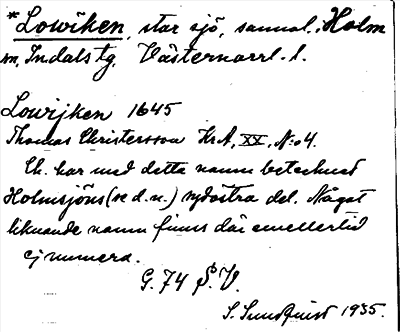 *Lowiken, stor sjö, samml. i Holm
sn, Indals tg, Västernorrl. l.
Lowijken 1645
Thomas Christersson KrA, XX, N:o 4.
Ch. har med detta namn betecknat
Holmsjöns (se d. n.) sydöstra del. Något
liknande namn finns där emellertid
ej numera.
G. 74 S. V.
S. Sundquist 1935.